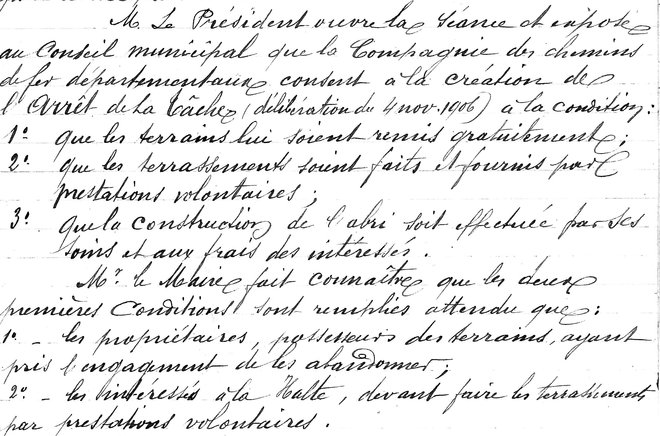 M. Le Président ouvre la séance et expose
au Conseil municipal que la Compagnie des chemins
de fer départementaux consent à la création de
l'Arrêt de La Tache (délibération du 4 nov. 1906) à la condition :
1º que les terrains lui soient remis gratuitement ;
2º que les terrassements soient faits et fournis par
prestations volontaires ;
3º que la construction de l'abri soit effectuée par ses
soins et aux frais des intéressés.
Mr. le Maire fait connaître que les deux
premières Conditions sont remplies attendu que :
1º - les propriétaires, possesseurs des terrains, ayant
pris l'engagement de les abandonner ;
2º - les intéressés à la Halte, devant faire les terrassements
par prestations volontaires.